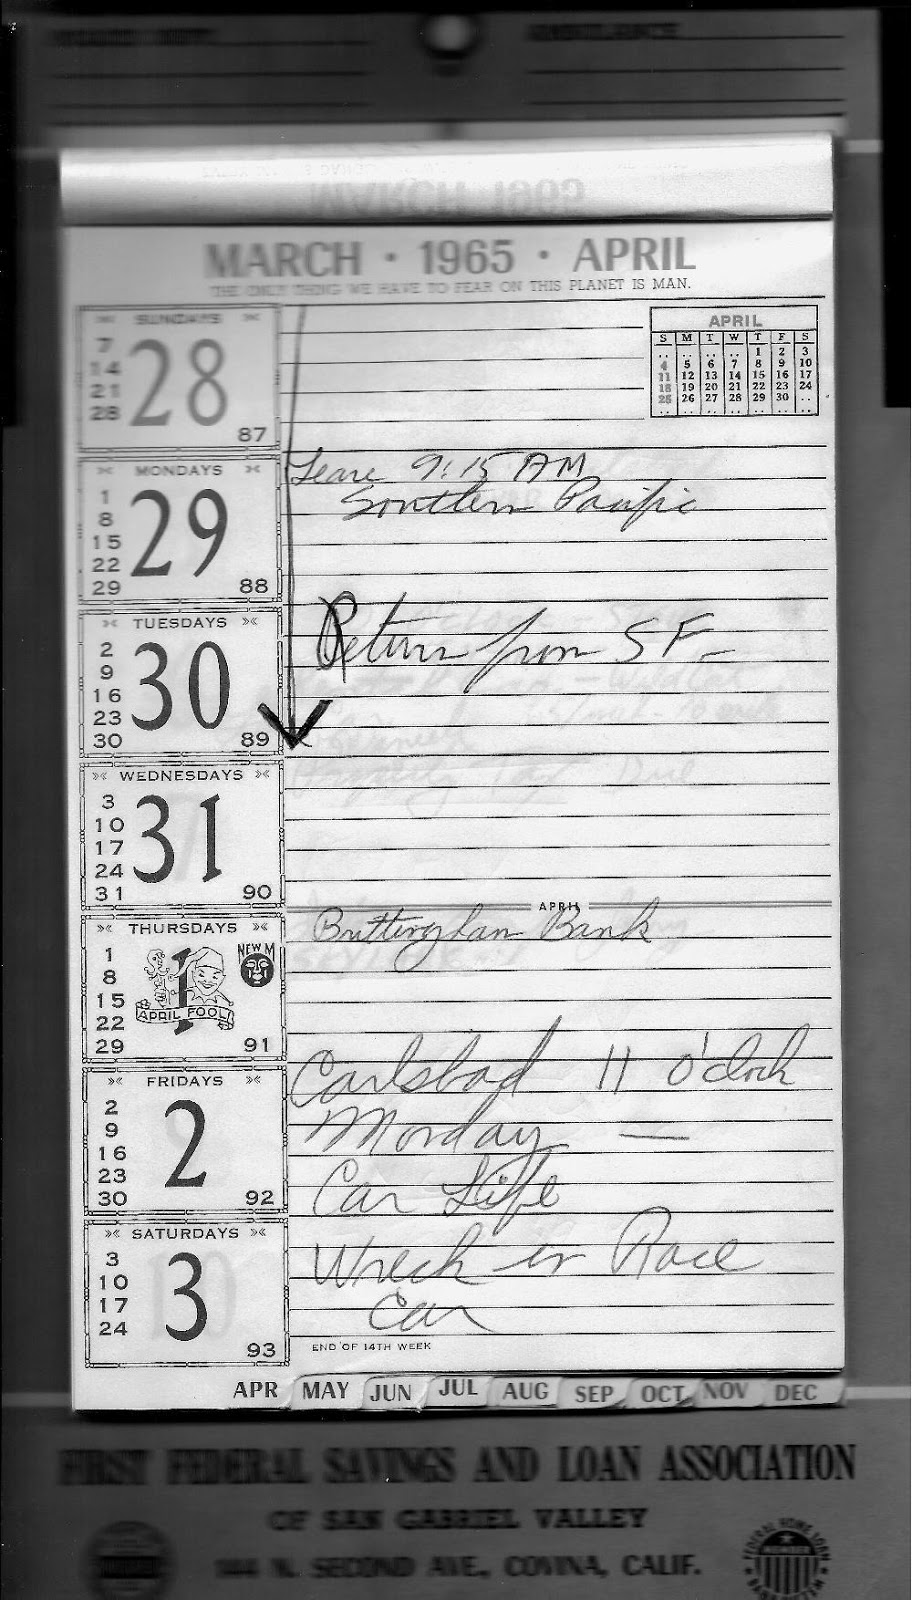 MARCH 1965
MARCH · 1965 · APRIL
THE ONLY THING WE HAVE TO FEAR ON THIS PLANET IS MAN.
SUNDAYS
7
14
21
28
28
87
APRIL
S M T W T F S
.. .. .. .. 1 2 3
4 5 6 7 8 9 10
11 12 13 14 15 16 17
18 19 20 21 22 23 24
25 26 27 28 29 30 ..
MONDAYS
1
8
15
22
29
29
88
Leave 9:15 AM
Southern Pacific
TUESDAYS
2
9
16
23
30
30
89
Return from SF
WEDNESDAYS
3
10
17
24
31
31
90
APRIL
THURSDAYS
1
8
15
22
29
1
NEW M
APRIL FOOL
91
Bank
FRIDAYS
2
9
16
23
30
2
92
Carlsbad 11 o'clock
Monday —
Car Life
SATURDAYS
3
10
17
24
3
93
Wreck in Race
Car
END OF 14TH WEEK
APR MAY JUN JUL AUG SEP OCT NOV DEC
FIRST FEDERAL SAVINGS AND LOAN ASSOCIATION
OF SAN GABRIEL VALLEY
144 N. SECOND AVE, COVINA, CALIF.